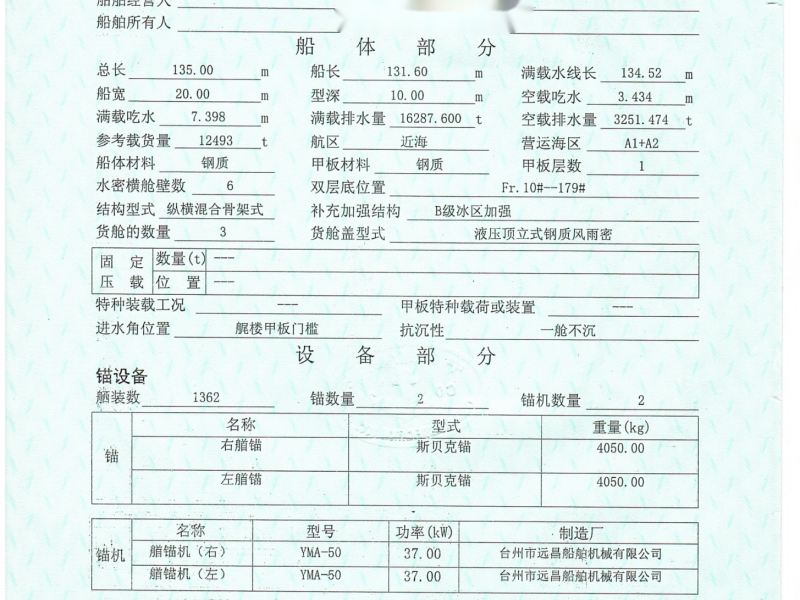 船舶经营人
船舶所有人
船 体 部 分
总长 135.00 m 船长 131.60 m 满载水线长 134.52 m
船宽 20.00 m 型深 10.00 m 空载吃水 3.434 m
满载吃水 7.398 m 满载排水量 16287.600 t 空载排水量 3251.474 t
参考载货量 12493 t 航区 近海 营运海区 A1+A2
船体材料 钢质 甲板材料 钢质 甲板层数 1
水密横舱壁数 6 双层底位置 Fr.10#--179#
结构型式 纵横混合骨架式 补充加强结构 B级冰区加强
货舱的数量 3 货舱盖型式 液压顶立式钢质风雨密
固定压载 数量(t) ---
位置 ---
特种装载工况 --- 甲板特种载荷或装置 ---
进水角位置 艉楼甲板门槛 抗沉性 一舱不沉
设 备 部 分
锚设备
舾装数 1362 锚数量 2 锚机数量 2
名称 型式 重量(kg)
锚 右艏锚 斯贝克锚 4050.00
左艏锚 斯贝克锚 4050.00
名称 型号 功率(kW) 制造厂
锚机 艏锚机（右） YMA-50 37.00 台州市远昌船舶机械有限公司
艏锚机（左） YMA-50 37.00 台州市远昌船舶机械有限公司